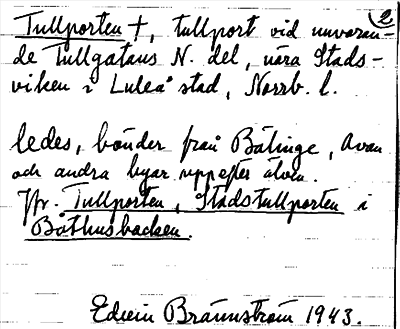 2
Tullporten †, tullport vid nuvaran-
de Tullgatans N. del, nära Stads-
viken i Luleå stad, Norrb. l.
ledes, bönder från Bälinge, Avan
och andra byar uppefter älven.
Jfr. Tullporten, Stadstullporten i
Båthusbacken.
Edvin Brännström 1943.